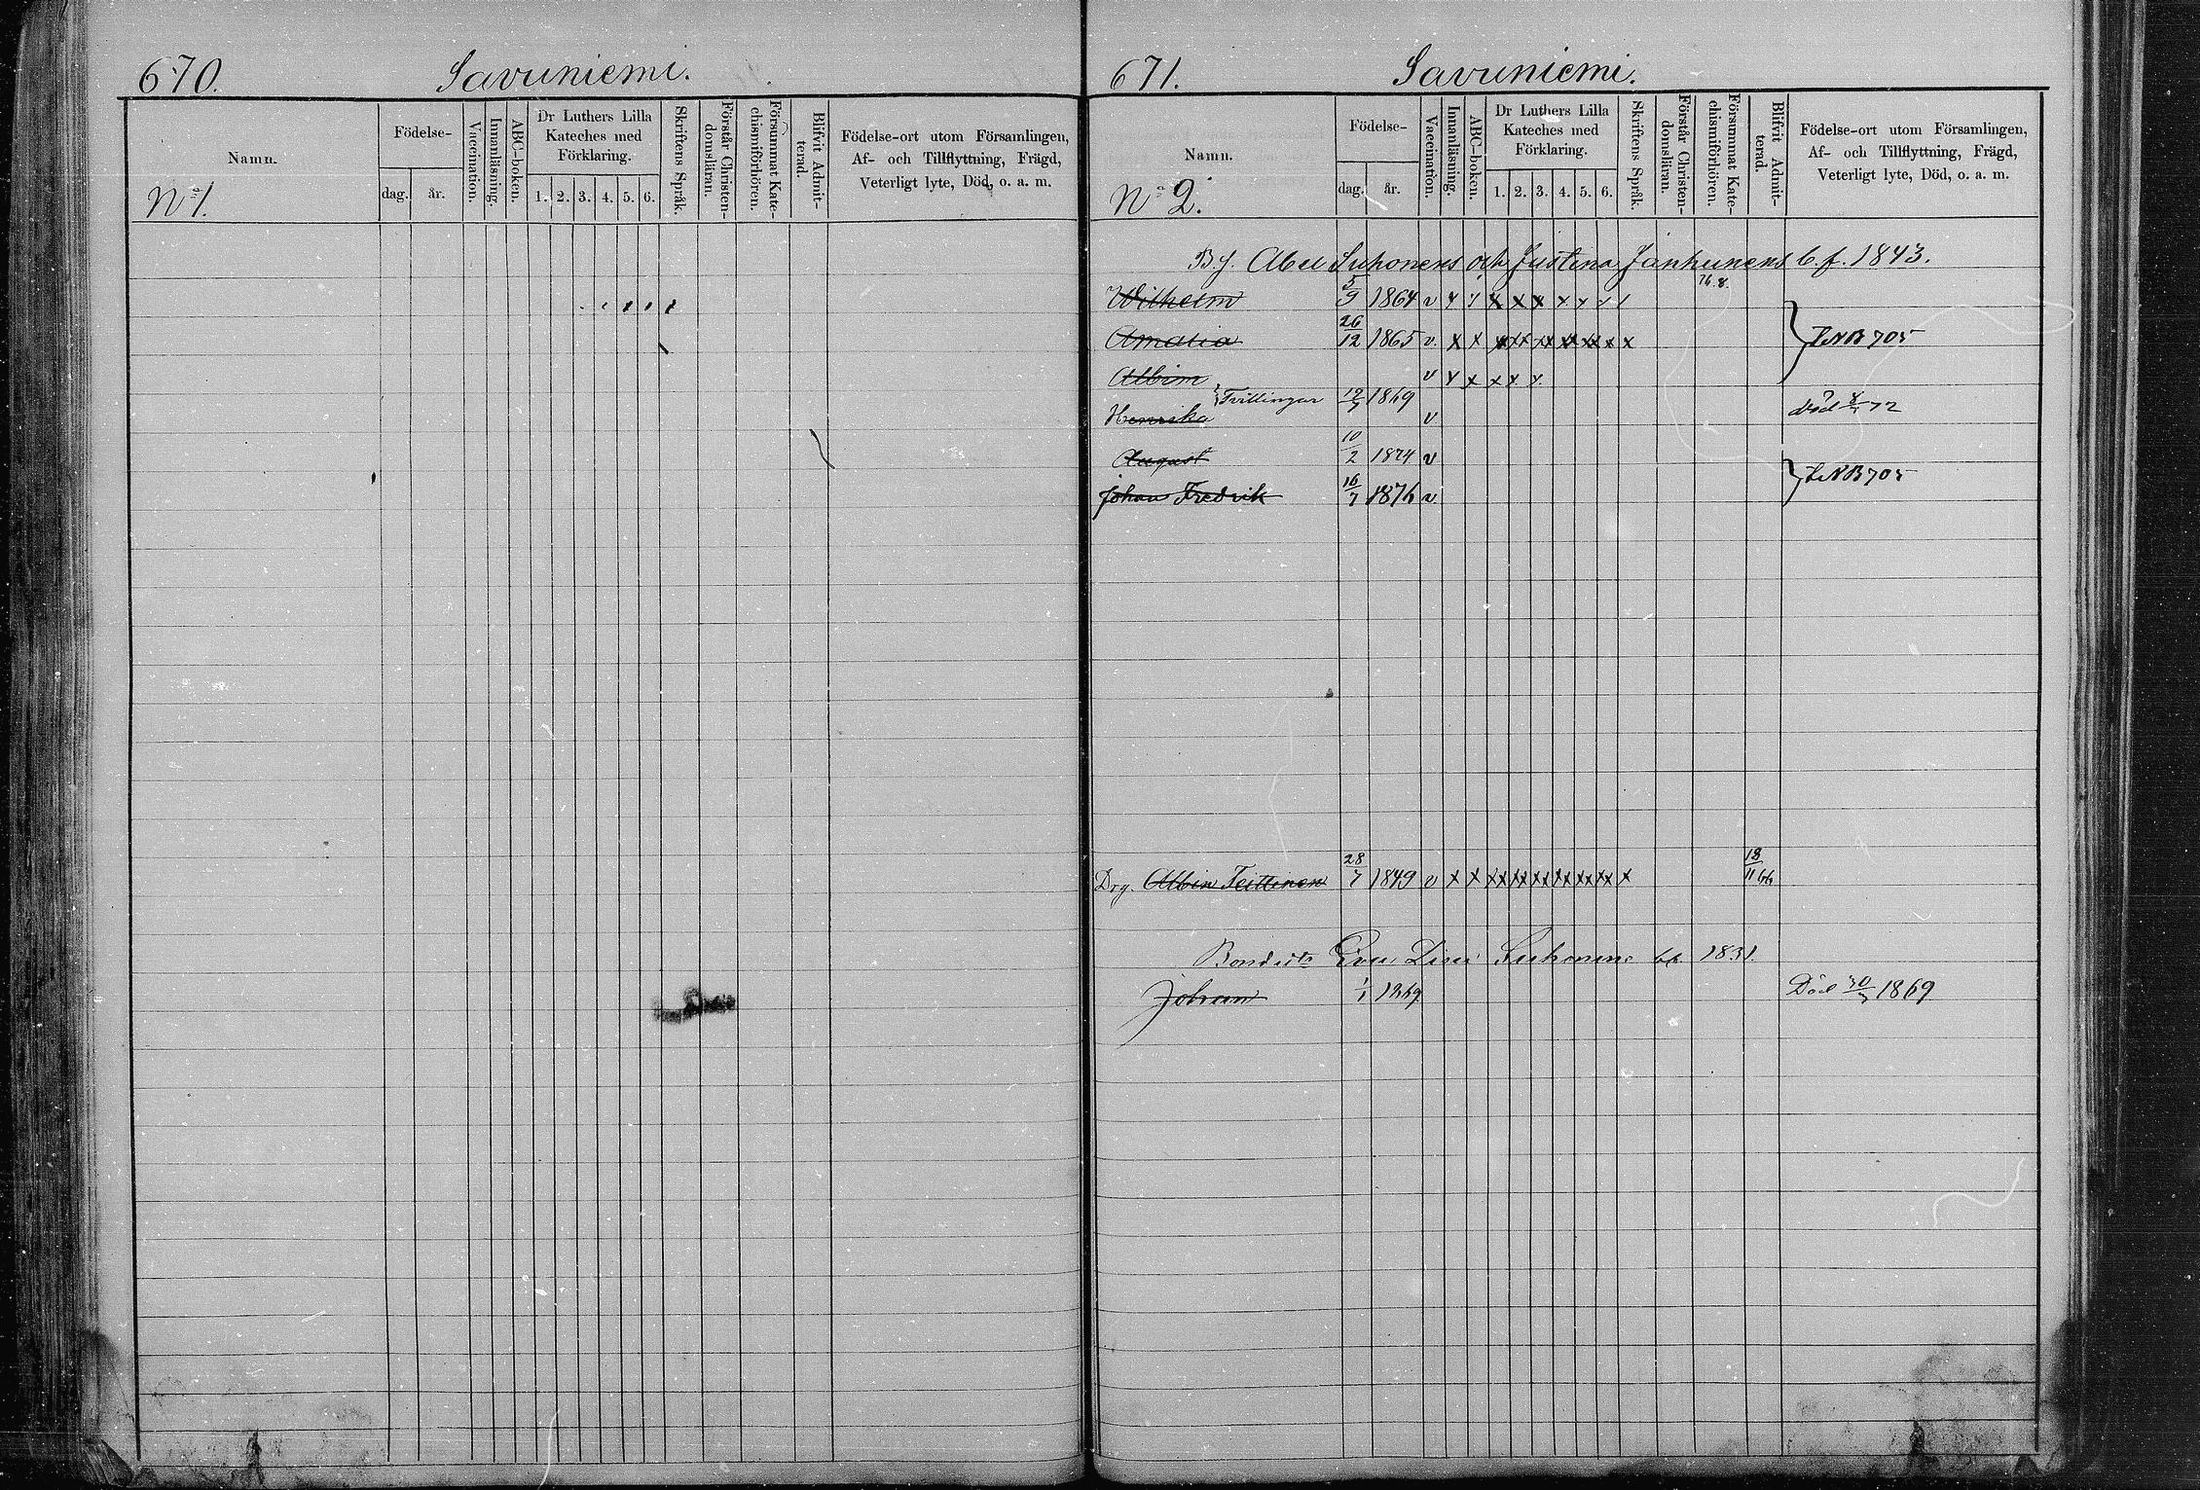 670. Savuniemi.
Namn.
Födelse-
dag. år.
Vaccination.
Innanläsning.
ABC-boken.
Dr Luthers Lilla
Kateches med
Förklaring.
1. 2. 3. 4. 5. 6.
Skriftens Språk.
Förstår Christen-
domsläran.
Försummat Kate-
chismiförhören.
Blifvit Admit-
terad.
Födelse-ort utom Församlingen,
Af- och Tillflyttning, Frägd,
Veterligt lyte, Död, o. a. m.
No 1.
671. Savuniemi.
Namn.
Födelse-
dag. år.
Vaccination.
Innanläsning.
ABC-boken.
Dr Luthers Lilla
Kateches med
Förklaring.
1. 2. 3. 4. 5. 6.
Skriftens Språk.
Förstår Christen-
domsläran.
Försummat Kate-
chismiförhören.
Blifvit Admit-
terad.
Födelse-ort utom Församlingen,
Af- och Tillflyttning, Frägd,
Veterligt lyte, Död, o. a. m.
No 2.
Abel Suhonens och Justina Janhunens b. f. 1843.
Wilhelm 5/9 1864 v x x x x x x x x 76.8.
Amalia 26/12 1865 v. x x xx xx xx xx xx x x 705
Albim v x x x x x
Tvillingar 12/9 1869
Henrika v död 8/1 72
August 10/2 1874 v
Johan Fredrik 16/7 1876 v 705
Drg. Albin Teittinen 28/7 1849 v x x xx xx xx xx xx xx x 18/11 66
Eva Lisa Suhonens 1831.
Johan 1/1 1869 Död 30/7 1869